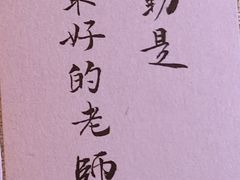 動是
最好的老師